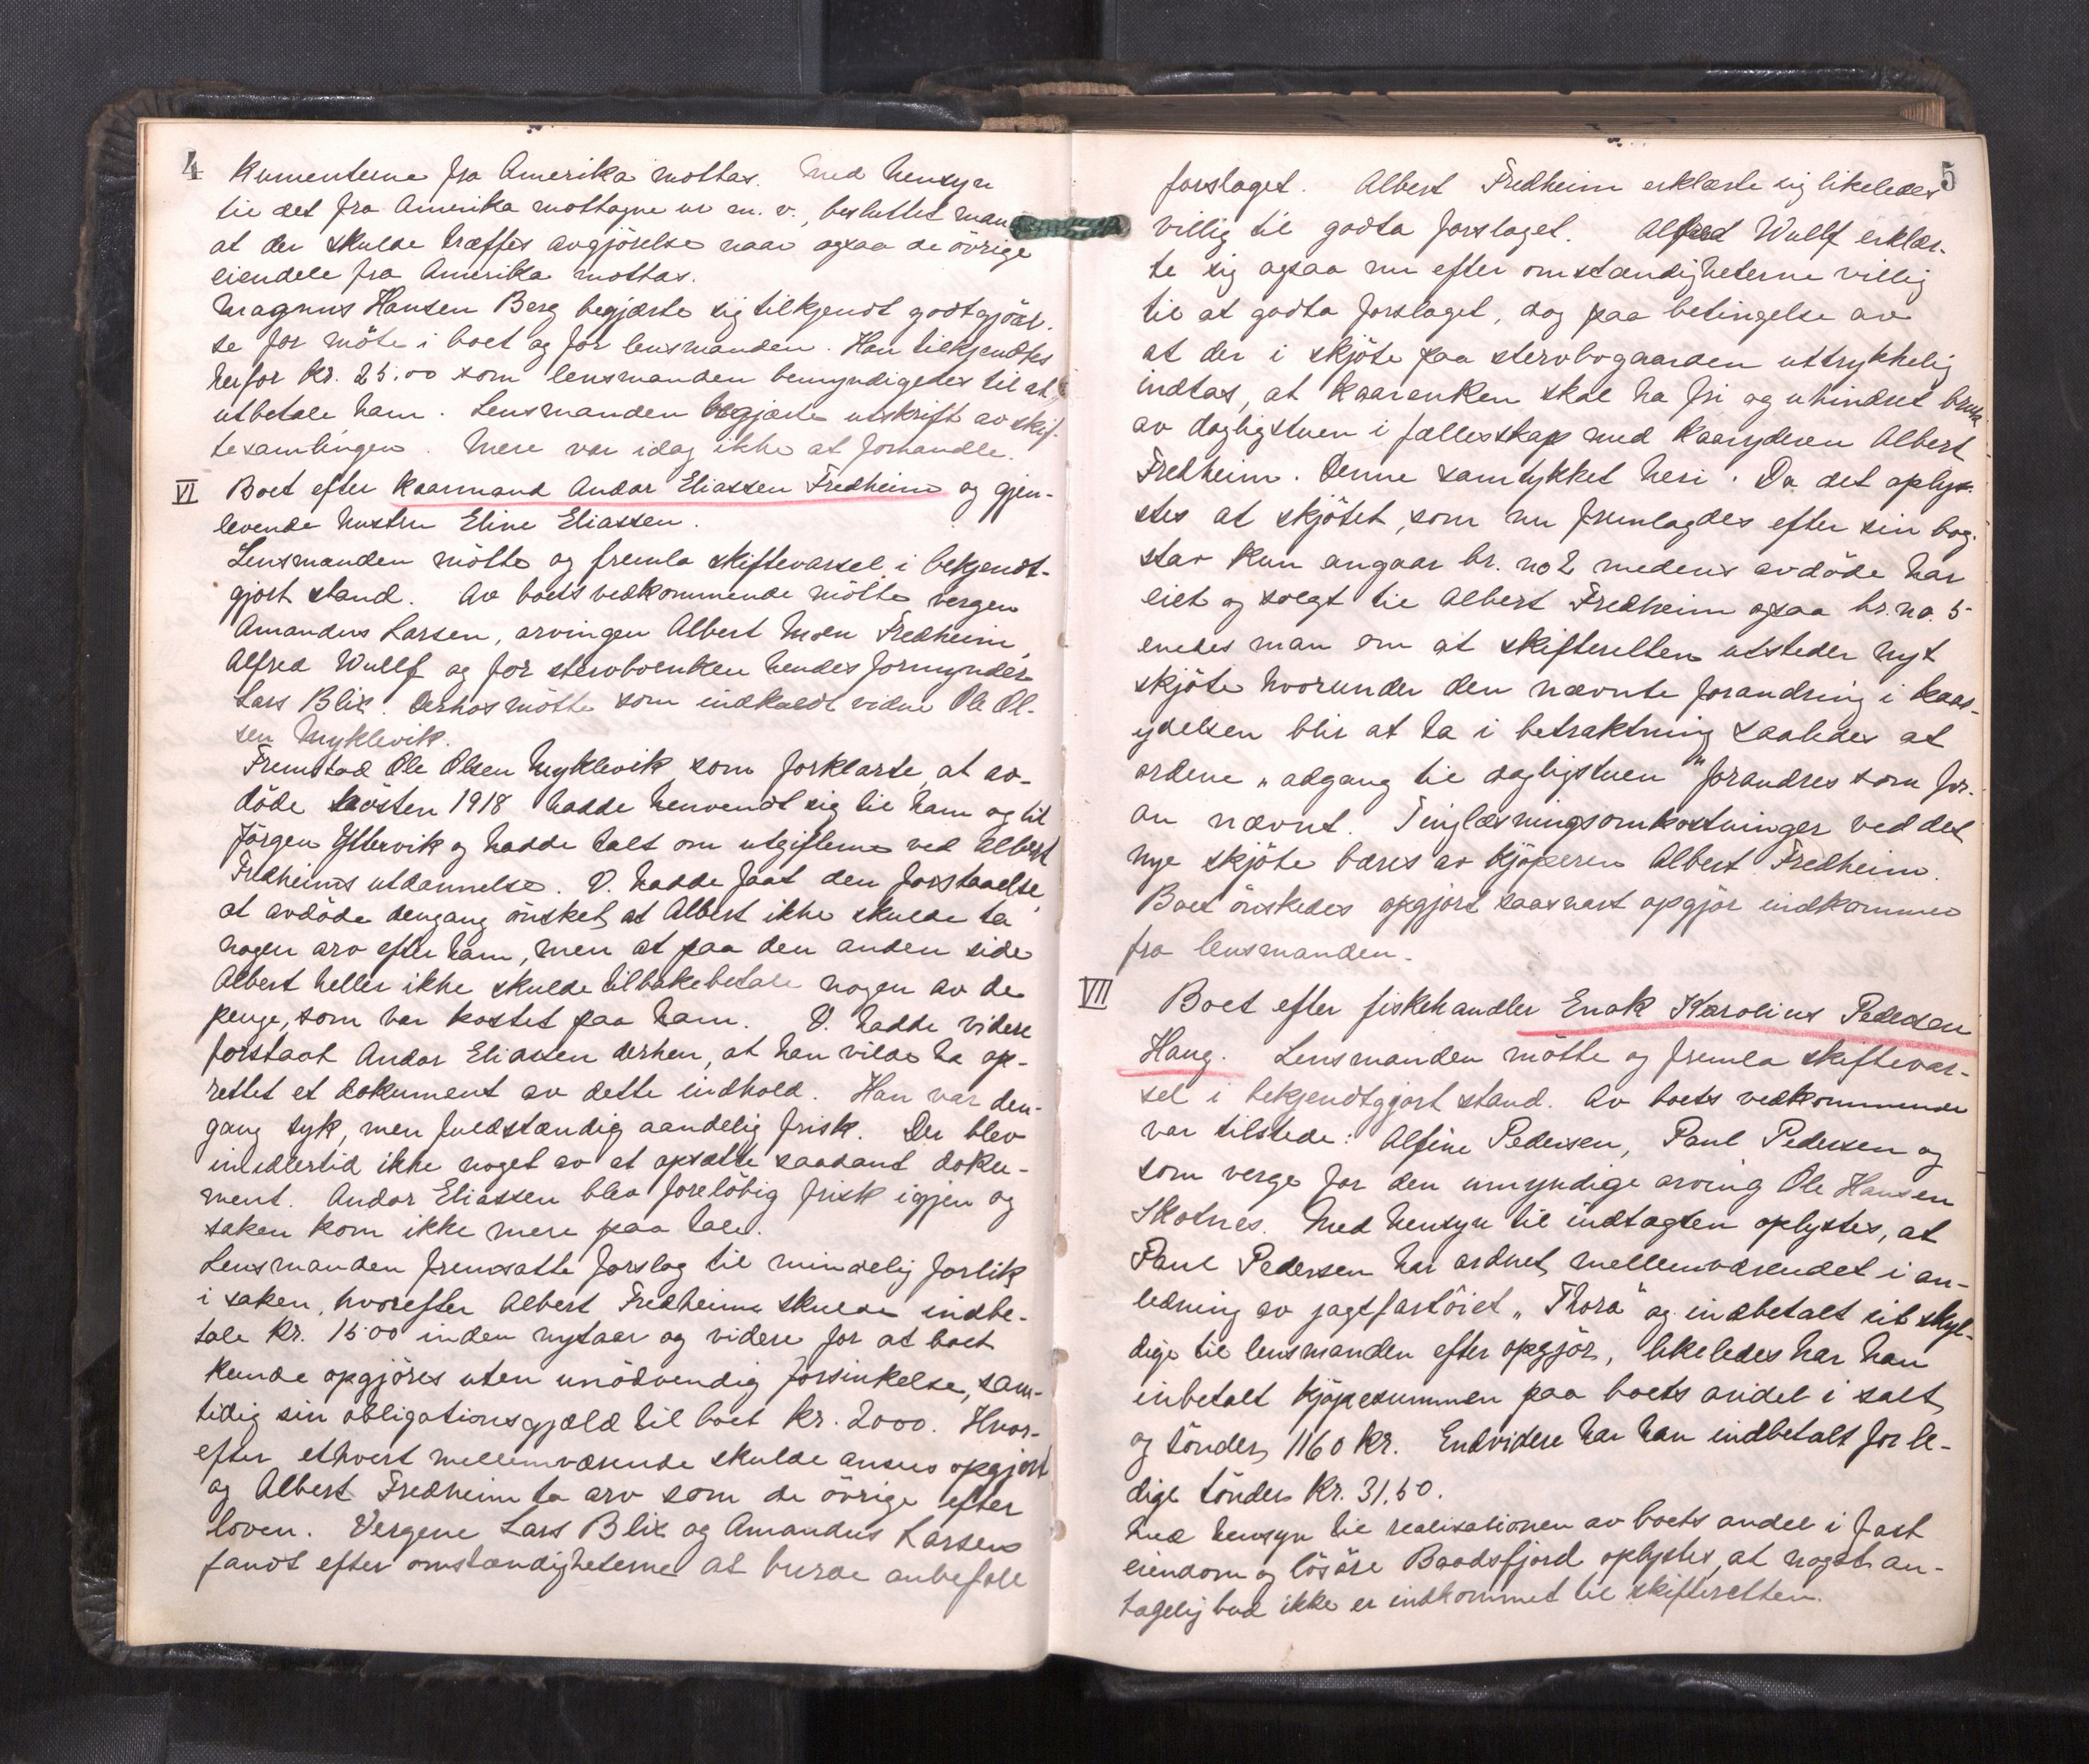 4
kumenterne fra Amerika mottas. Med hensyn
til det fra Amerika mottagne ur m. v., besluttet man
at der skulde træffes avgjörelse naar ogsaa de övrige
eiendele fra Amerika mottas.
Magnus Hansen Berg begjærte sig tilkjendt godtgjörel-
se for möte i boet og for lensmanden. Han tilkjendtes
herfor kr. 25.00 som lensmanden bemyndigedes til at
utbetale ham. Lensmanden begjærte utskrift av skif-
tesamlingen. Mere var idag ikke at forhandle.
VI Boet efter kaarmand Andor Eliassen Fredheim og gjen-
levende hustru Eline Eliassen.
Lensmanden mötte og fremla skiftevarsel i bekjendt-
gjort stand. Av boets vedkommende mötte vergen
Amandus Larsen, arvingen Albert Moen Fredheim,
Alfred Wullf og for stervboenken hendes formynder
Lars Blix. Derhos mötte som indkaldt vidne Ole Ol-
sen Myklevik.
Fremstod Ole Olsen Myklevik som forklarte, at av-
döde høsten 1918 hadde henvendt sig til ham og til
Jörgen Yttervik og hadde talt om utgifterne ved Albert
Fredheims utdannelse. V. hadde faat den forstaaelse,
at avdöde dengang önsket at Albert ikke skulde ta
nogen arv efter ham, men at paa den anden side
Albert heller ikke skulde tilbakebetale nogen av de
penge, som var kostet paa ham. V. hadde videre
forstaat Andor Eliassen derhen, at han vilde ha op-
rettet et dokument av dette indhold. Han var den-
gang syk, men fuldstændig aandelig frisk. Der blev
imidlertid ikke noget av at opsætte saadant doku-
ment. Andor Eliassen blev foreløbig frisk igjen og
saken kom ikke mere paa tale.
Lensmanden fremsatte forslag til mindelig forlik
i saken, hvorefter Albert Fredheim skulde indbe-
tale kr. 1500 inden nytaar og videre for at boet
kunde opgjöres uten unödvendig forsinkelse, sam-
tidig sin obligationsgjæld til boet kr. 2000. Hvor-
efter ethvert mellemværende skulde ansees opgjort
og Albert Fredheim ta arv som de övrige efter
loven. Vergene Lars Blix og Amandus Larsen
fandt efter omstændigheterne at burde anbefale
5
forslaget. Albert Fredheim erklærte sig likeledes
villig til godta forslaget. Alfred Wullf erklær-
te sig ogsaa nu efter omstændigheterne villig
til at godta forslaget, dog paa betingelse av
at der i skjöte paa stervbogaarden uttrykkelig
indtas, at kaarenken skal ha fri og uhindret bruk
av dagligstuen i fællesskap med kaaryderen Albert
Fredheim. Denne samtykket heri. Da det oplys-
tes at skjötet, som nu fremlagdes efter sin bog-
stav kun angaar br. no 2 medens avdöde har
eiet og solgt til Albert Fredheim ogsaa br. no. 5
enedes man om at skifteretten utsteder nyt
skjöte hvorunder den nævnte forandring i kaar-
ydelsen blir at ta i betraktning saaledes at
ordene „adgang til dagligstuen" forandres som for-
an nævnt. Tinglæsningsomkostninger ved det
nye skjöte bæres av kjöperen Albert Fredheim.
Boet önskedes opgjort saasnart opgjör indkommer
fra lensmanden.
VII Boet efter fiskehandler Enok Karolius Pedersen
Haug. Lensmanden mötte og fremla skiftevar-
sel i bekjendtgjort stand. Av boets vedkommende
var tilstede: Alfine Pedersen, Paul Pedersen og
som verge for den umyndige arving Ole Hansen
Skotnes. Med hensyn til indtægten oplystes, at
Paul Pedersen har ordnet mellemværendet i an-
ledning av jagtfartöiet „Thora" og indbetalt sit skyl-
dige til lensmanden efter opgjör, likeledes har han
inbetalt kjöpesummen paa boets andel i salt
og tönder, 1160 kr. Endvidere har han indbetalt for le-
dige tönder kr. 31.50.
Med hensyn til realisationen av boets andel i fast
eiendom og lösöre Baadsfjord oplystes, at noget an-
tagelig bud ikke er indkommet til skifteretten.